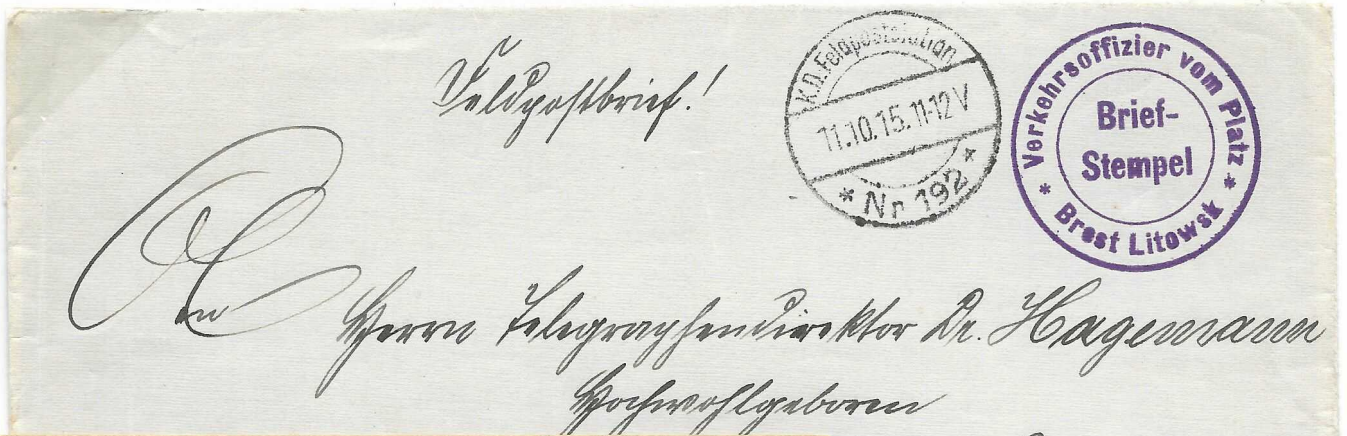 Feldpostbrief!
K.D. Feldpoststation
11.10.15. 11-12 V
* Nr. 192 *
* Verkehrsoffizier vom Platz *
Brief-
Stempel
Brest Litowsk
An
Herrn Telegraphendirektor Dr. Hagemann
Hochwohlgeboren